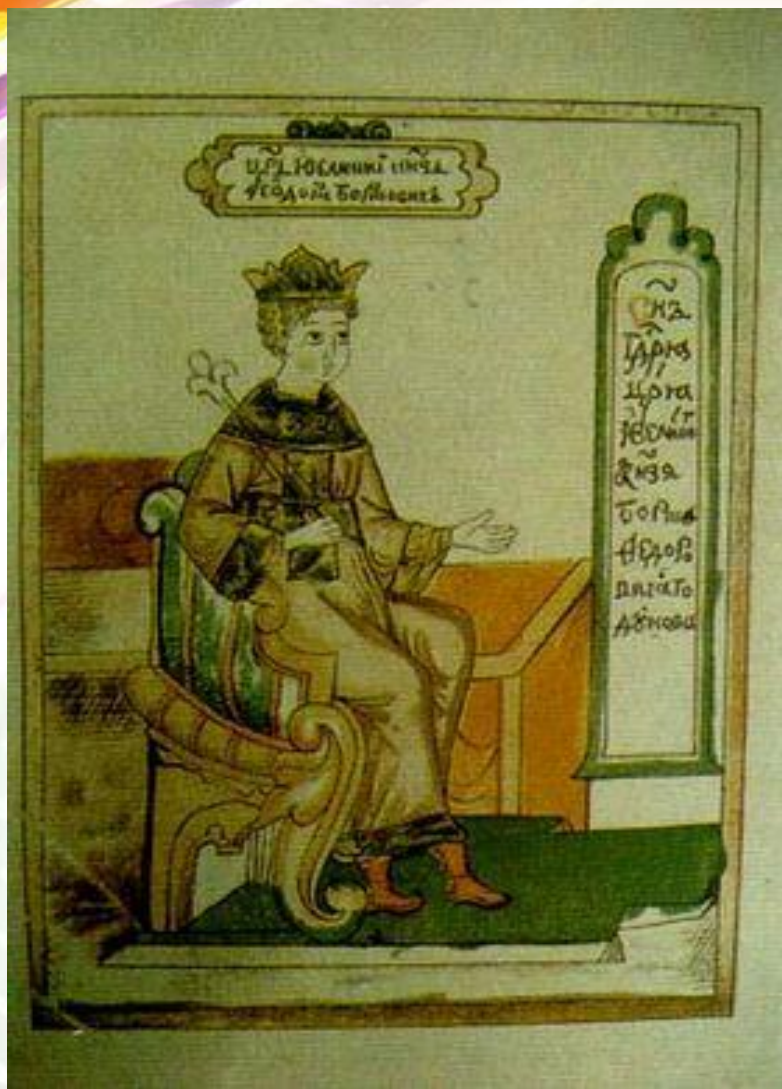 цр҃ь и великі кн҃зь
Ѳеодоръ Борисовичъ
Сн҃ъ
Гдр҃ѧ
цр҃ѧ
и велик
кн҃зя
Бориса
Ѳедоро
вича Го
дꙋнова